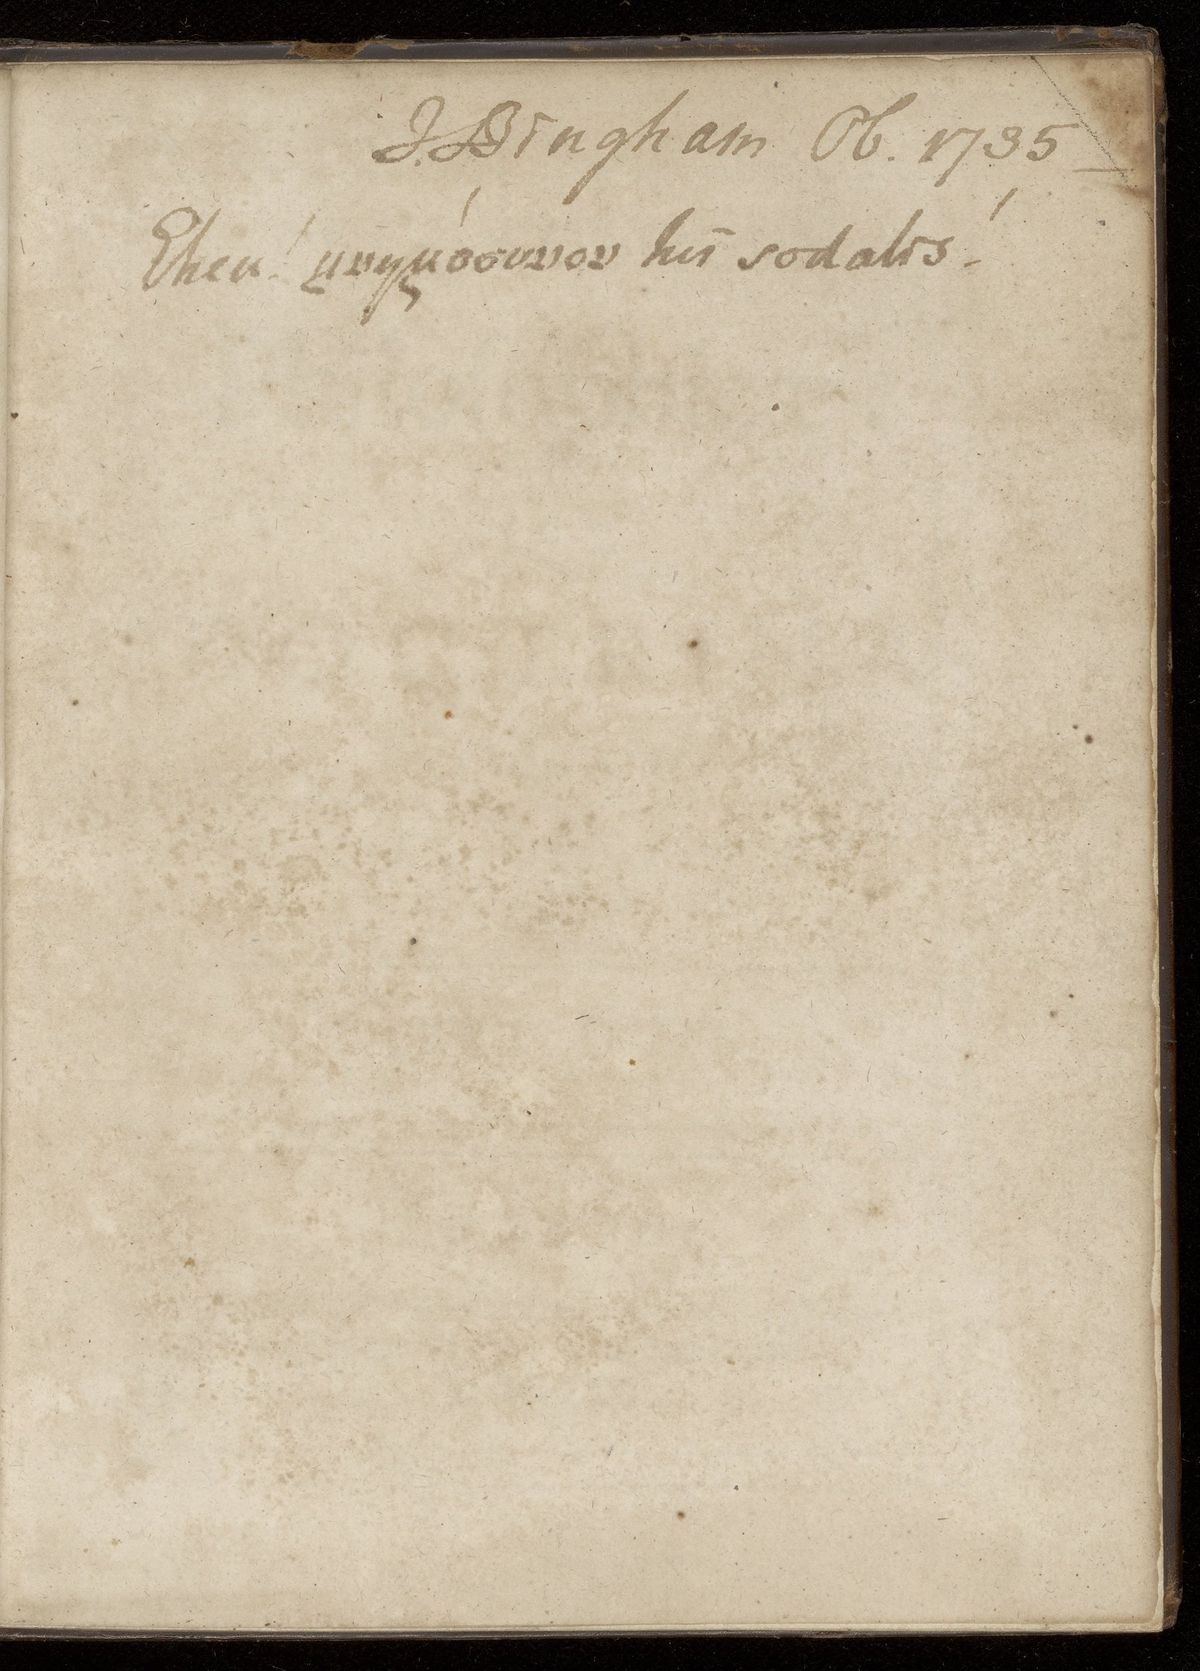 J. Bingham Ob. 1735
Eheu! μνημόσυνον sodalis!